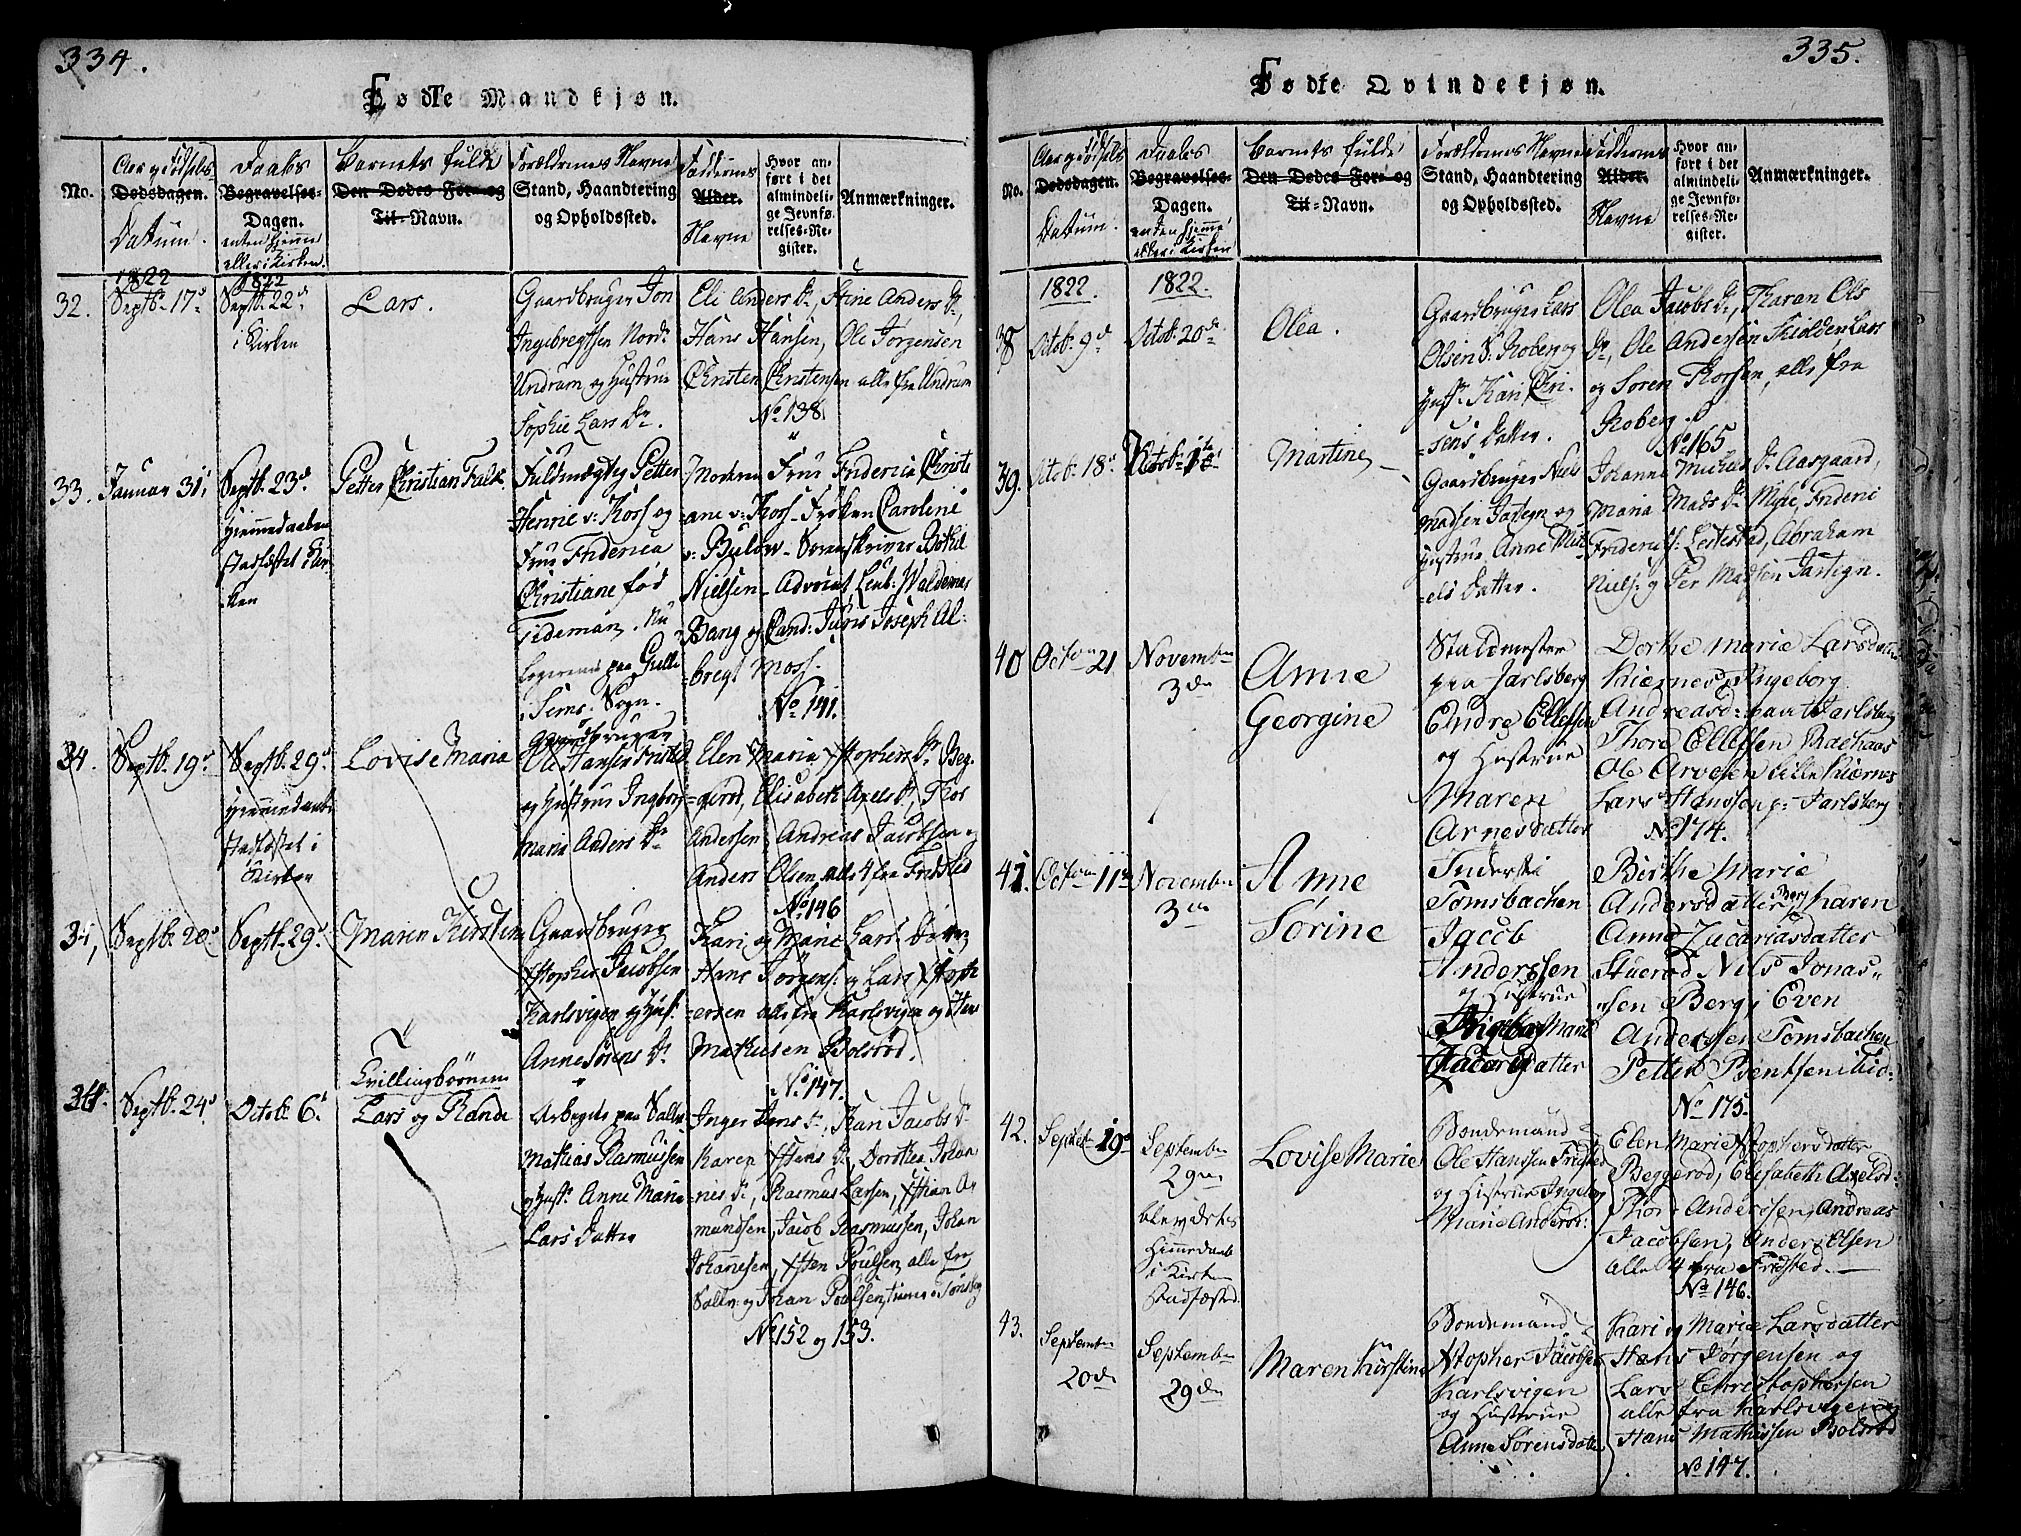 334.
Fødte Mandkjøn.
No.
Aar og Fødsels-
Dødsdagen.
Datum.
Daabs
Begravelses-
Dagen.
enten hjemme
eller i Kirken.
Barnets fulde
Den Dødes For- og
Til-Navn.
Forældrenes Navne
Stand, Haandtering
og Opholdssted.
Faddernes
Alder.
Navne
Hvor an-
ført i det
almindeli-
ge Jevnfø-
relses-Re-
gister.
Anmærkninger.
1822
1822
32.
Septb. 17d
Septb. 22d
i Kirken
Lars.
Gaardbruger Jon
Ingebregtsen Nord.
Undrum og Hustrue
Sophie Lars Dr.
Eli Anders D., Stine Anders D.,
Hans Hansen, Ole Jørgensen
Christen Christensen alle fra Undrum
No. 138.
33.
Januar 31,
Septb. 23d
Hjemmedaaben
Stadfæstet i Kir-
ken
Petter Christian Falk.
Fuldmægtig Petter
Henric v: Koss og
Frue Friderica
Christiane fød
Tideman. Nu
Logerende paa Gulli
i Sems Sogn.
Moderen Frue Friderica Christi
ane v: Koss - Frøken Caroline
v: Bulow - Sorenskriver Bøkil
Nielsen - Advocat, Leut: Waldemar
Bang og Cand: Juris Joseph Al-
bregt Moss.
No. 141.
34.
Septb. 19d
Septb. 29d
Hjemmedaab
Stadfæstet i
Kirken
Lovise Maria
Gaardbruger
Ole Hansen Fristed
og Hustrue Ingborg
Maria Anders Dr
Elen Maria Xstophers Dr Beg-
gerød, Elisabeth Axels D, Thor
Andersen Andreas Jacobsen og
Anders Olsen alle 4 fra Fristed
No. 146
35,
Septb. 20d
Septb. 29d
Maren Kirstine
Gaardbruger
Xstopher Jacobsen
Karlsvigen og Hust.
Anne Sørens D.
Kari og Marie Lars Døtre
Hans Jørgens: og Lars Xstoph
ersen alle fra Karlsvigen og Hans
Mathisen Bolsrød.
No. 147.
Septb. 24d
Octob. 6d
Tvillingbørnene
Lars og Rande
Arbeyds paa Vallø
Mathias Rasmussen
og Hust. Anne Maria
Lars Datter
Inger Jens D., Kari Jacobs D.
Karen Hans D., Dorthea Johan-
nes D., Rasmus Larsen, Xstian A-
mundsen, Jacob Rasmussen, Johan
Johannesen, Xsten Poulsen alle fra
Vallø og Johan Poulsen tienende i Tønsberg
No. 152 og 153.
335.
Fødte Qvindekjøn.
No.
Aar og Fødsels
Dødsdagen.
Datum.
Daabs
Begravelses-
Dagen.
enten hjemme
eller i Kirken
Barnets fulde
Den Dødes For- og
Til-Navn.
Forældrenes Navne
Stand, Haandtering
og Opholdssted.
Faddernes
Alder.
Navne
Hvor an-
ført i det
almindeli-
ge Jevnfø-
relses-Re-
gister.
Anmærkninger.
1822.
1822.
38
Octob. 9d
Octob. 20de
Olea.
Gaardbruger Lars
Olsen S: Roberg og
Hust. Kari Chri-
stens Datter.
Olea Jacobs D., Karan Ols
D., Ole Andersen Skiolden Lars
og Soren Thorsen, alle fra
Roberg.
No. 165
39.
Octob. 18d
Martine
Gaardbruger Niels
Madsen Jastegn og
Hustrue Anne Mich-
els Datter.
Johanne Michels D. Aasgaard,
Maria Mads D. Møe, Frideri
Frideriks: Leitestad, Abraham
Niels: og Per Madsen Jastegn.
40
Octom 21
Novembr
3de
Anne
Georgine
Staldmester
paa Jarlsberg
Endre Ellefsen
og Hustrue
Maren
Arnesdatter
Dorthe Marie Larsdatter
Kiernes, Ingeborg
Andreasd: paa Jarlsberg
Thore Ellefsen Rakaas
Ole Arvesen Lille Kiernes
Lars Hansson p: Jarlsberg
No. 174.
41.
Octom 11te
Novembr
3de
Anne
Sørine
Inderst i
Tomsbachen
Jacob
Anderssen
og Hustrue
Ingebor Marie
Zacarisdatter
Birthe Marie
Andersdatter Berg Karen
Anne Zacariasdatter
Stuerød Nils Jonas-
sen Berg, Even
Anderssen Tomsbachen
Petter Bentsen ibid:
No. 175.
42.
Septebr 19d
Septembr
29de
blev dets
Himedaab
i Kirken
stadfæsted.
Lovise Marie
Bondemand
Ole Hanssen Fristed
og Hustrue Ingeborg
Marie Andersd:
Elen Marie Xstophersdatter
Beggerød, Elisabeth Axelsd:
Thor Anderssen, Andreas
Jacobsen, Anders Olsen
alle 4 fra Fristed.
No. 146.
43.
Septembr
20de
Septembr
29de
Maren Kirstine
Bondemand
Xstopher Jacobsen
Karlsvigen
og Hustrue
Anne Sørensdatter
Kari og Marie Larsdatter
Hans Jørgensen og
Lars Christophersen
alle fra Karlsvigen og
Hans Mathissen Bolsrød
No. 147.